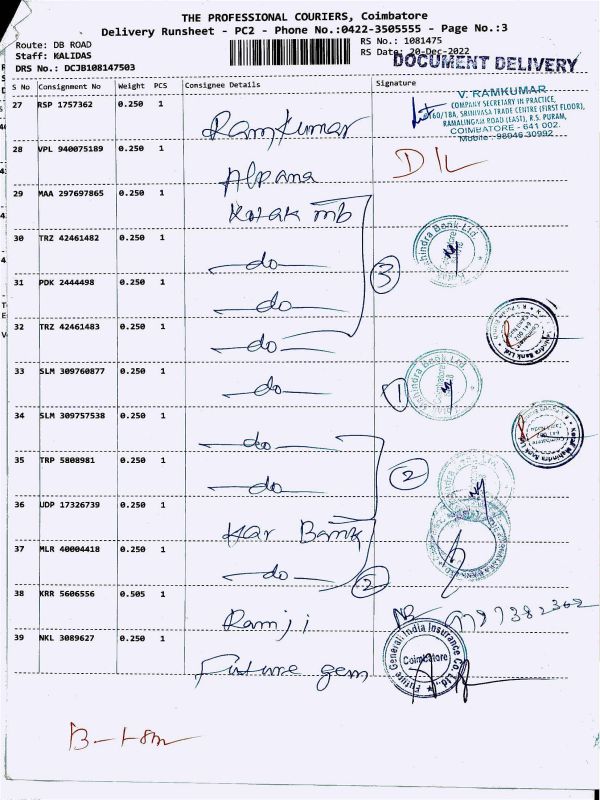 THE PROFESSIONAL COURIERS, Coimbatore
Delivery Runsheet - PC2 - Phone No.:0422-3505555 - Page No.:3
Route: DB ROAD
Staff: KALIDAS
DRS No.: DCJB108147503
RS No.: 1081475
RS Date: 20-Dec-2022
DOCUMENT DELIVERY
S No Consignment No Weight PCS Consignee Details Signature
27 RSP 1757362 0.250 1 Ramkumar
V. RAMKUMAR
COMPANY SECRETARY IN PRACTICE,
60/18A, SRINIVASA TRADE CENTRE (FIRST FLOOR),
RAMALINGAM ROAD (EAST), R.S. PURAM,
COIMBATORE - 641 002.
Mobile : 98946 30992
28 VPL 940075189 0.250 1 Alpana D/L
29 MAA 297697865 0.250 1 Kotak mb
30 TRZ 42461482 0.250 1 do
31 PDK 2444498 0.250 1 do 3
32 TRZ 42461483 0.250 1 do
33 SLM 309760877 0.250 1 do 1
34 SLM 309757538 0.250 1 do
35 TRP 5808981 0.250 1 do 2
36 UDP 17326739 0.250 1 Kar Bank
37 MLR 40004418 0.250 1 do 2
38 KRR 5606556 0.505 1 Ramji
39 NKL 3089627 0.250 1 Future gem
Future General India Insurance Co. Ltd.
Coimbatore